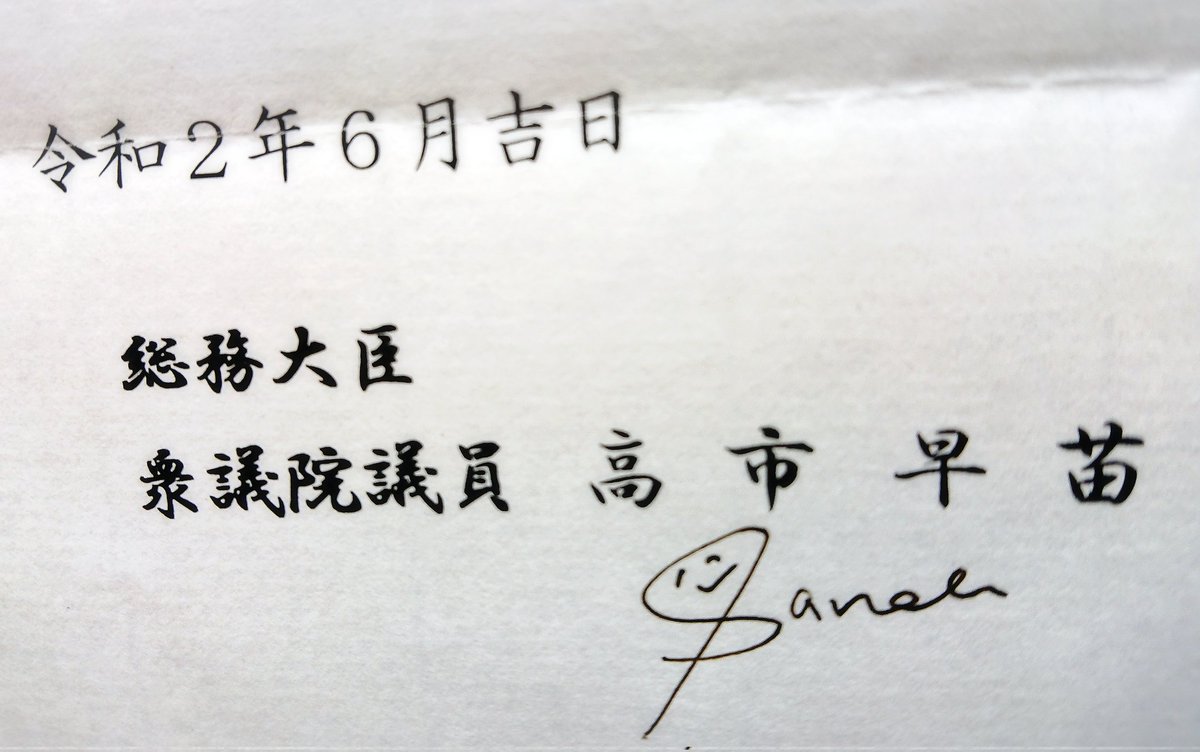 令和２年６月吉日
総務大臣
衆議院議員 高市早苗
Sanae